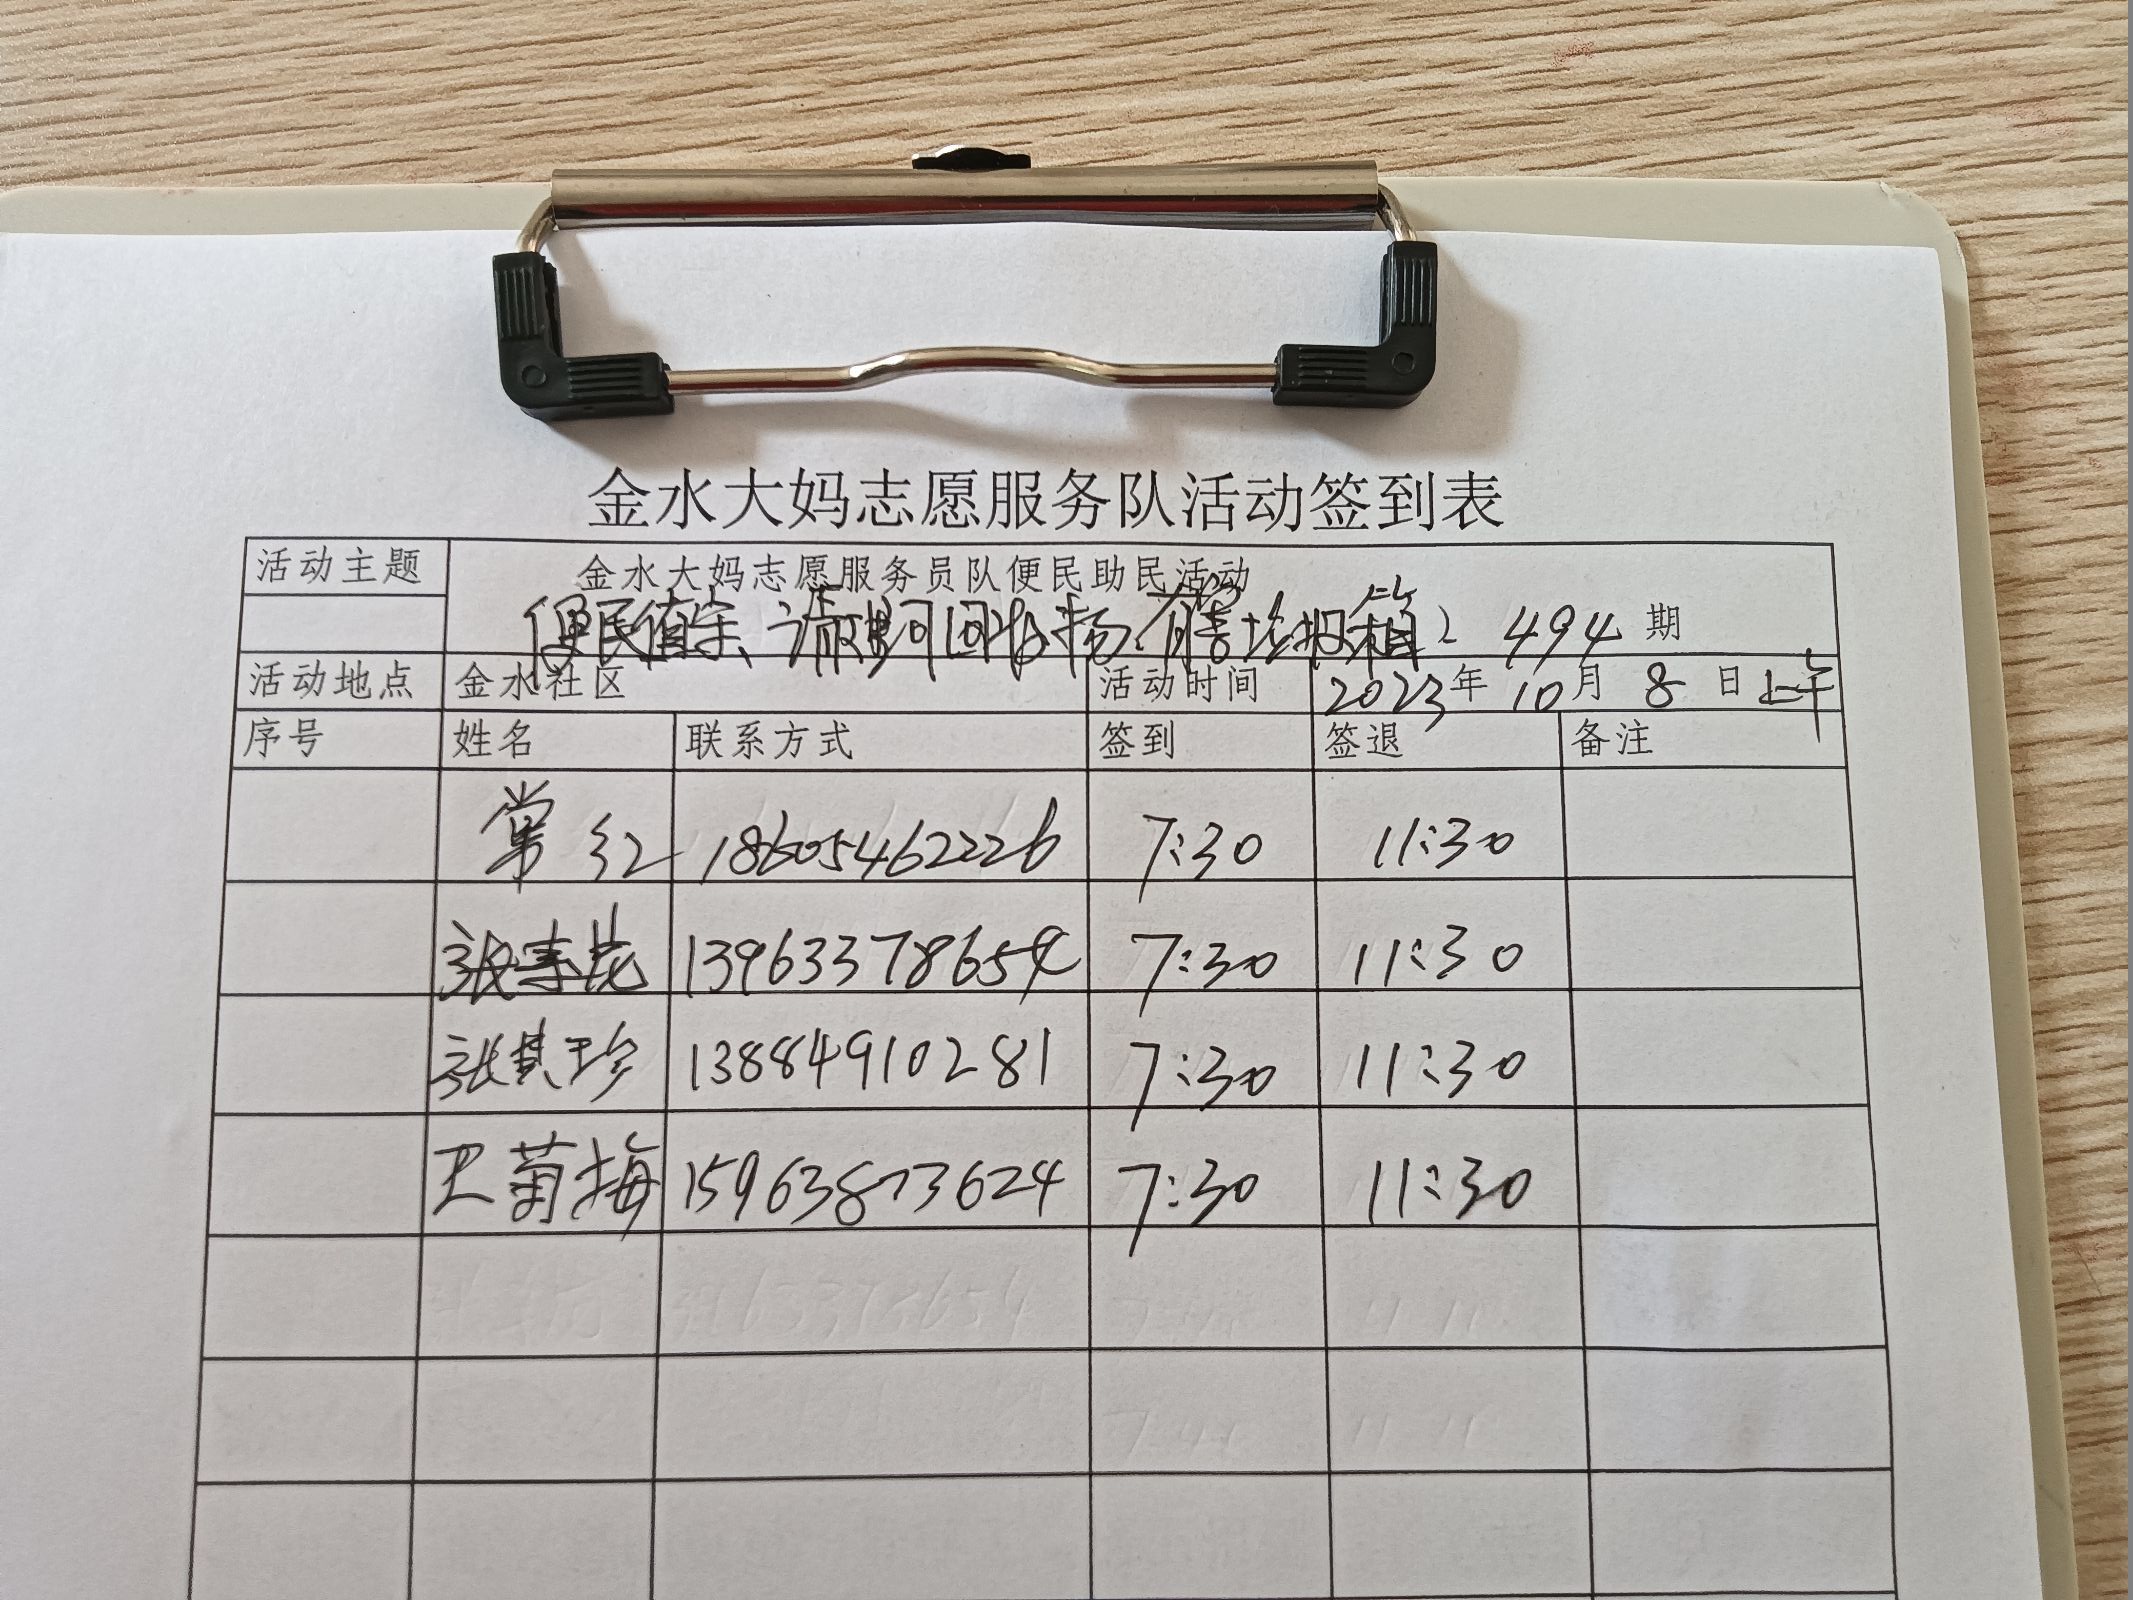 金水大妈志愿服务队活动签到表
活动主题 金水大妈志愿服务员队便民助民活动
便民 494 期
活动地点 金水社区 活动时间 2023年 10月 8 日 上午
序号 姓名 联系方式 签到 签退 备注
常红 18605462226 7:30 11:30
张 13963378654 7:30 11:30
张其珍 13884910281 7:30 11:30
菊梅 15963873624 7:30 11:30